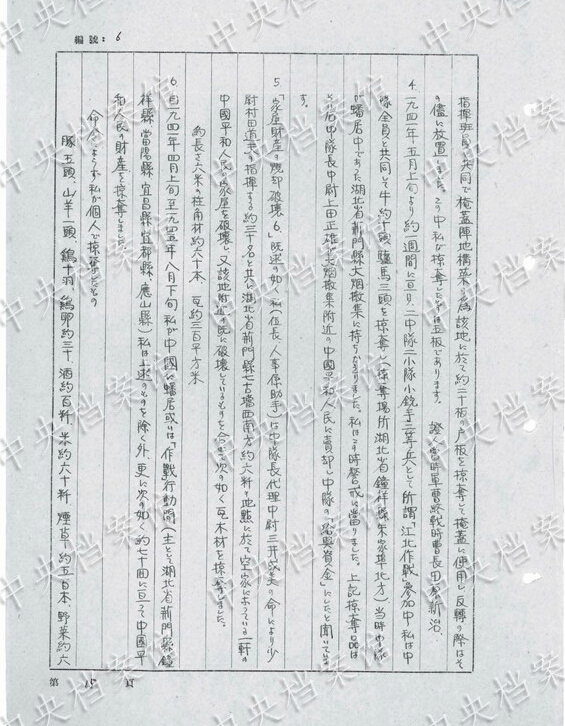 編號：6
指揮班員と共同で掩蓋陣地構築の爲該地に於て約二十板の戸板を掠奪して掩蓋に使用し、反轉の際はそ
の儘に放置しました。この中私が掠奪した戸は五板であります。 證人 當時軍曹終戰時曹長田 新治.
4. 一九四一年五月上旬より約一週間に亘り、二中隊二小隊小銃手二等兵として所謂「江北作戰」参加中、私は中
隊全員と共同して牛約十頭、驢馬三頭を掠奪し（掠奪場所湖北省鐘祥縣朱家埠北方）當時中隊
が蟠居中であった湖北省荊門縣大烟墩集に持ちかえりました。私はこの時 戒に當りました。上記掠奪品は
その后中隊長中尉上田正雄が大烟墩集附近の中國平和人民に賣却し中隊の「 興資金」にしたと聞いていま
す.
5. 「家屋財産の燒却破壞6.」既述の如く私（伍長、人事係助手）は中隊長代理中尉三井 夫の命により少
尉村田道夫の指揮する約三十名と共に湖北省荊門縣七古壋西南方約六粁の地點に於て空家になっている一軒の
中國平和人民の家屋を破壞し、又該地附近の既に破壞しているものを合せ次の如く瓦木材を掠奪しました。
約長さ六米の柱角材約六十本、瓦約三百平方米
6 自一九四一年四月上旬至一九四五年八月下旬、私が中國に蟠居或いは「作戰」行動間（主として湖北省荊門縣鐘
祥縣當陽縣宜昌縣宜都縣應山縣）私は上述のものを除く外、更に次の如く約七十回に亘って中國平
和人民の財産を掠奪しました。
命令によらず私が個人で掠奪したもの
豚五頭、山羊一頭、鷄十羽、鷄卵約三十、酒約百斤、米約六十斤、煙草約五百本、野菜約六
第 15 頁
中央档案馆